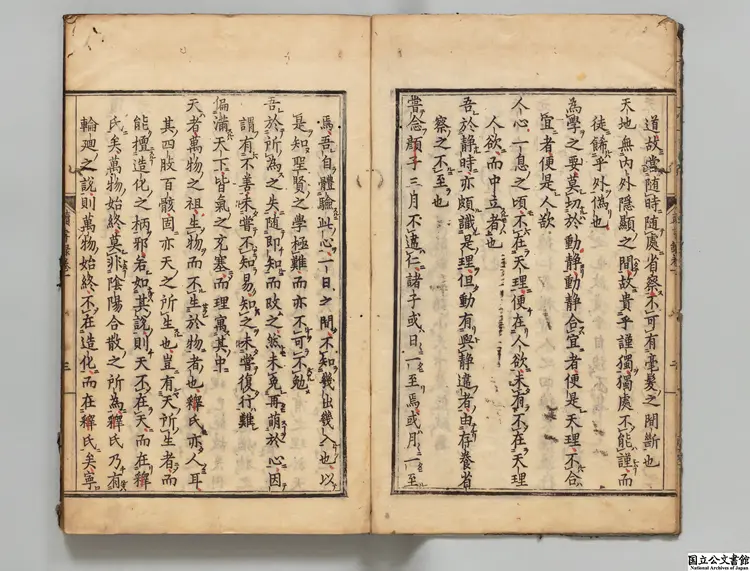 道故當隨時隨處省察不可有毫髮之間斷也
天地無内外隱顯之間故貴乎謹獨獨處不能謹而
徒餙乎外僞也
為學之要莫切於動静動静合宜者便是天理不合
宜者便是人欲
人心一息之頃不在天理便在人欲未有不在天理
人欲而中立者也
吾於静時亦頗識是理但動有與静違者由存養省
察之不至也
嘗念顔子三月不違仁諸子或日一至焉或月一至
焉吾自體驗此心一日之間不知幾出幾入也以
是知聖賢之學極難而亦不可不勉
吾於所為之失隨即知而改之然未免再萌於心因
謂有不善未嘗不知易知之未嘗復行難
偏滿天下皆氣之充塞而理寓其中
天者萬物之祖生物而不生於物者也釋氏亦人耳
其四肢百骸固亦天之所生也豈有天所生者而
能擅造化之柄邪若如其說則天不在天而在釋
氏矣萬物始終莫非陰陽合散之所為釋氏乃有
輪廻之說則萬物始終不在造化而在釋氏矣寧
三
国立公文書館
National Archives of Japan